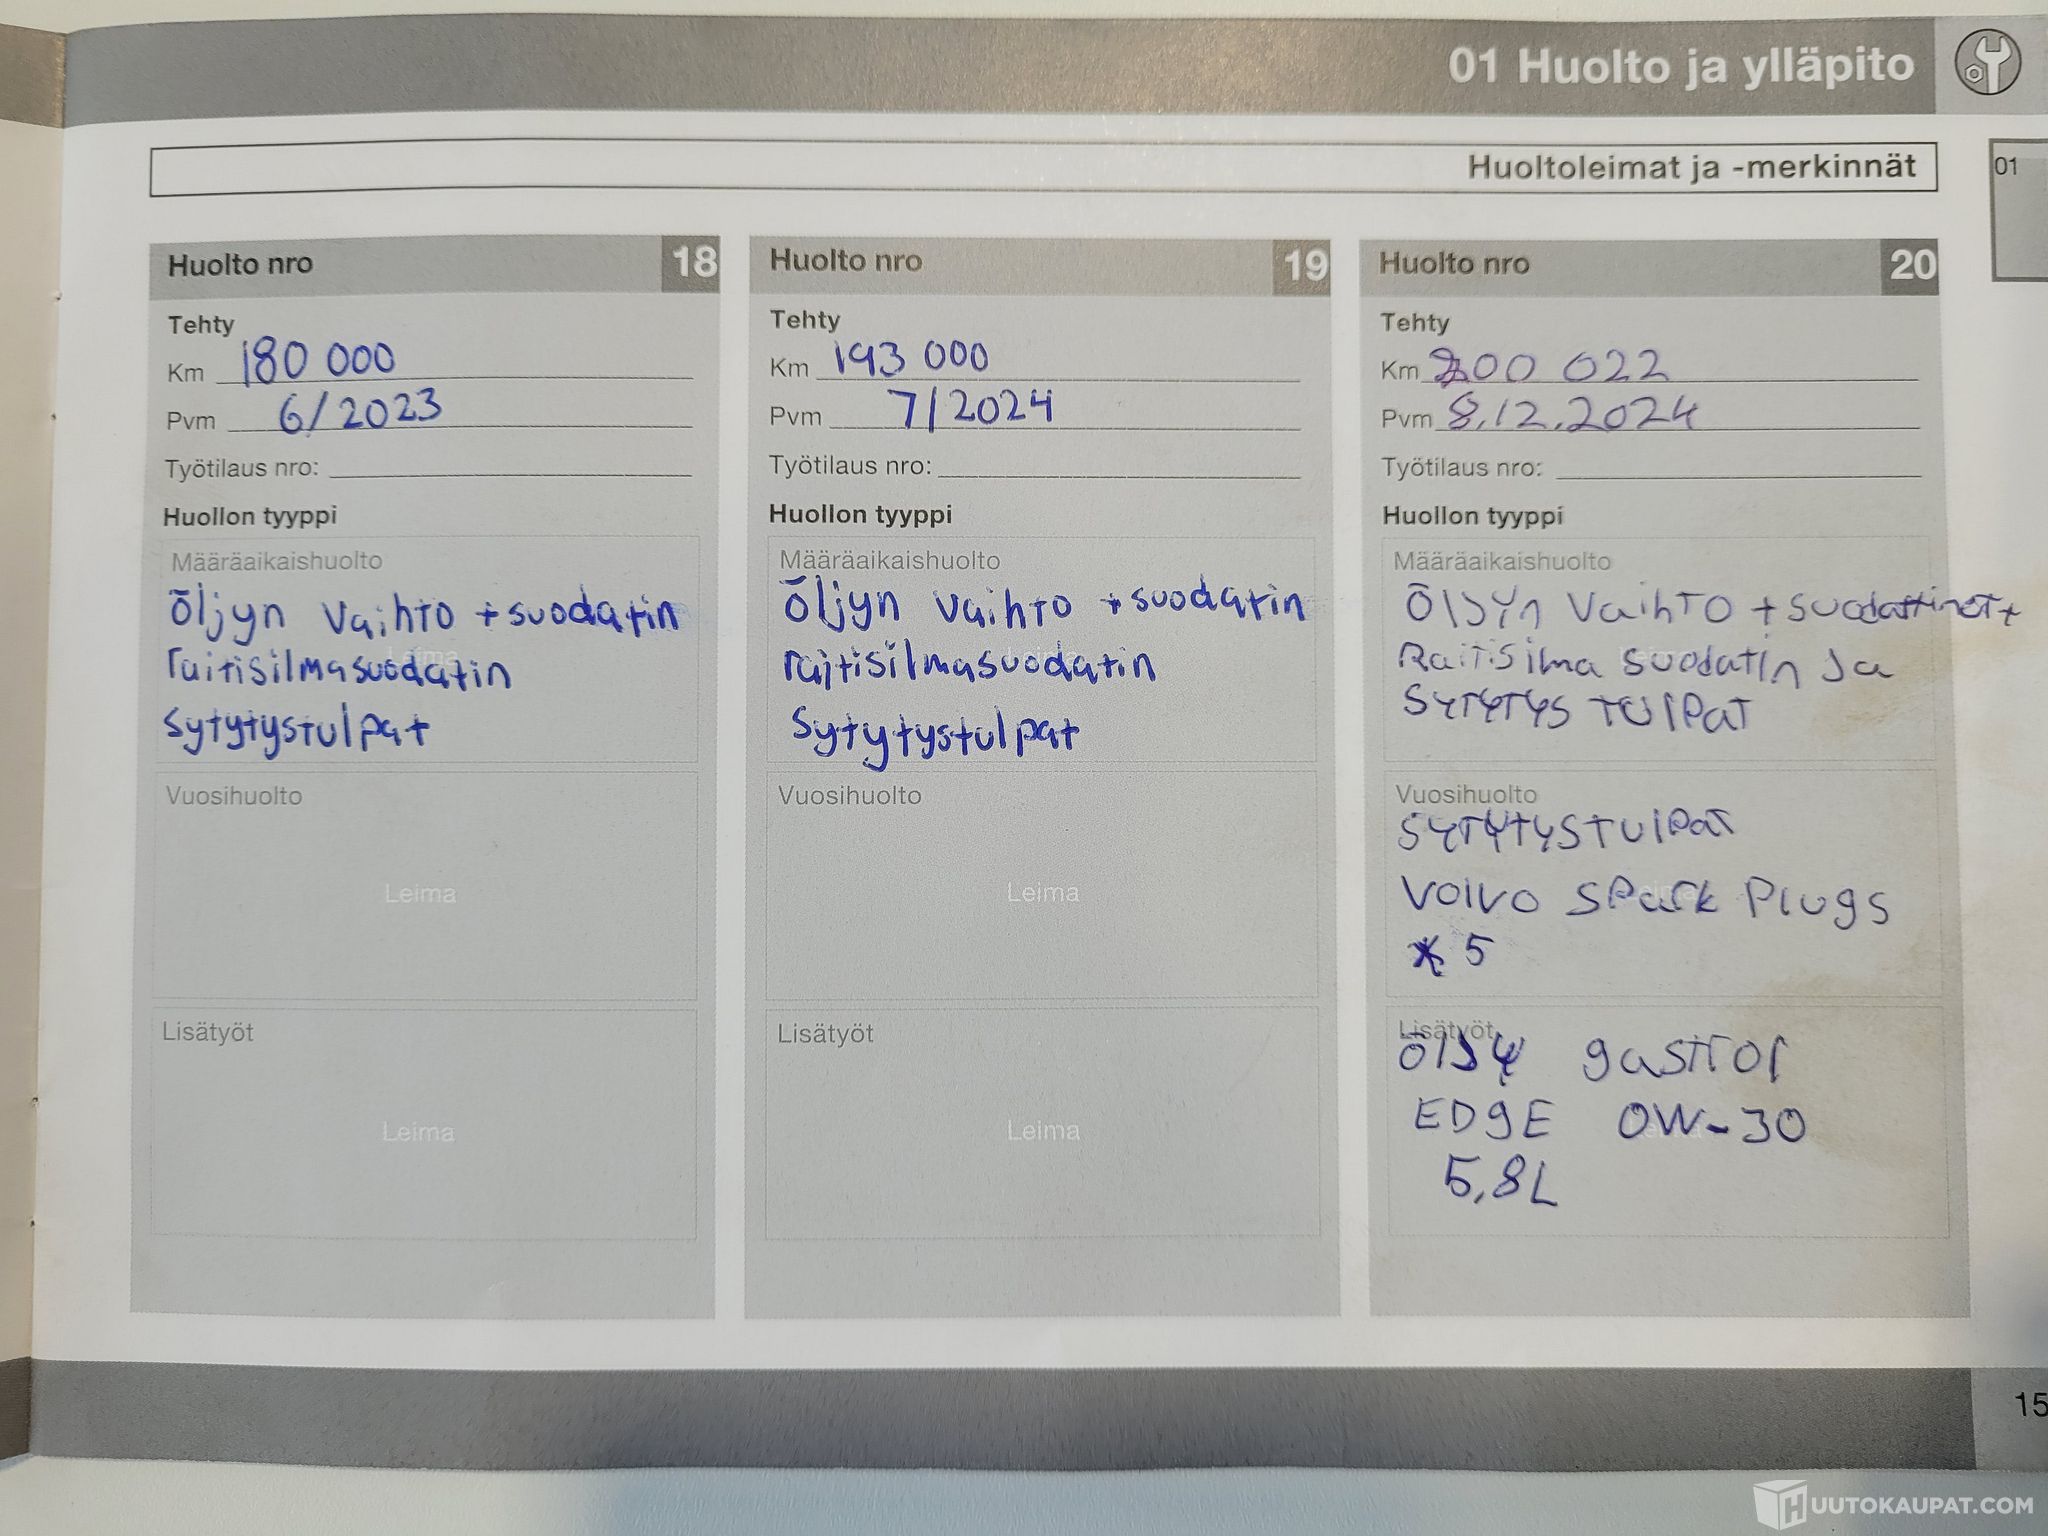 01 Huolto ja ylläpito
Huoltoleimat ja -merkinnät
01
Huolto nro 18
Tehty
Km 180 000
Pvm 6/2023
Työtilaus nro:
Huollon tyyppi
Määräaikaishuolto
Öljyn vaihto + suodatin
Leima
raitisilmasuodatin
sytytystulpat
Vuosihuolto
Leima
Lisätyöt
Leima
Huolto nro 19
Tehty
Km 193 000
Pvm 7/2024
Työtilaus nro:
Huollon tyyppi
Määräaikaishuolto
Öljyn vaihto + suodatin
raitisilmasuodatin
sytytystulpat
Vuosihuolto
Leima
Lisätyöt
Leima
Huolto nro 20
Tehty
Km 200 022
Pvm 8.12.2024
Työtilaus nro:
Huollon tyyppi
Määräaikaishuolto
Öljyn vaihto +
Raitisilma suodatin ja
sytytys tulpat
Vuosihuolto
sytytystulpat
Volvo spark plugs
* 5
Lisätyöt
Öljy gastrol
EDgE 0W-30
5,8L
15
HUUTOKAUPAT.COM